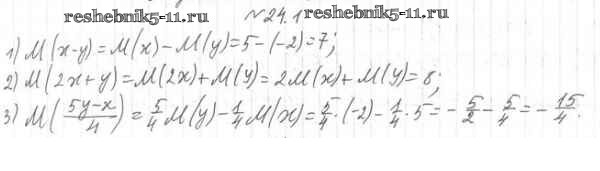 reshebnik5-11.ru №24.1 reshebnik5-11.ru
1) M(x-y)=M(x)-M(y)=5-(-2)=7;
2) M(2x+y)=M(2x)+M(y)=2M(x)+M(y)=8;
3) M((5y-x)/4)=5/4 M(y)-1/4 M(x)=5/4·(-2)-1/4·5=-5/2-5/4=-15/4.